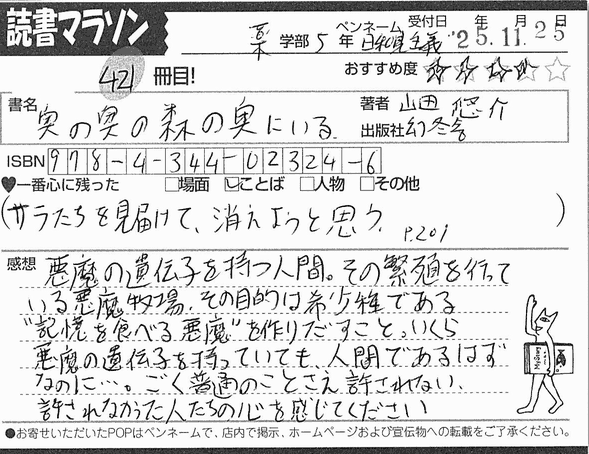 読書マラソン
薬学部5年 ペンネーム 日和見主義 受付日 '25年11月25日
421冊目! おすすめ度 ☆☆☆☆☆
書名 奥の奥の森の奥にいる 著者 山田悠介
出版社 幻冬舎
ISBN 978-4-344-02324-6
♥一番心に残った □場面 ☑ことば □人物 □その他
(サラたちを見届けて、消えようと思う。 P.201)
感想 悪魔の遺伝子を持つ人間。その繁殖を行って
いる悪魔牧場。その目的は希少種である
"記憶を食べる悪魔"を作りだすこと。いくら
悪魔の遺伝子を持っていても、人間であるはず
なのに…。ごく普通のことさえ許されない。
許されなかった人たちの心を感じてください
●お寄せいただいたPOPはペンネームで、店内で掲示、ホームページおよび宣伝物への転載をご了承ください。